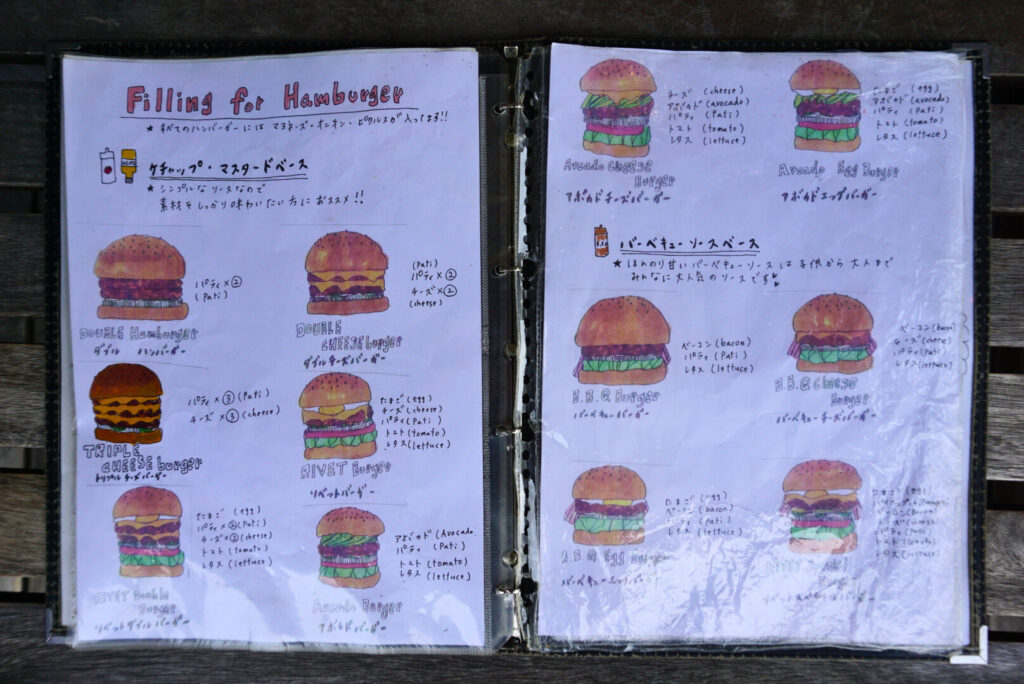 Filling for Hamburger
★ すべてのハンバーガーには マヨネーズ・オニオン・ピクルスが入ってます!!
ケチャップ・マスタードベース
★ シンプルな ソースなので
素材をしっかり味わいたい方に おススメ!!
パティ×②
(Pati)
DOUBLE Hamburger
ダブル ハンバーガー
(Pati)
パティ×②
チーズ×②
(cheese)
DOUBLE
CHEESE burger
ダブルチーズバーガー
パティ×③(Pati)
チーズ×③(cheese)
TRIPLE
CHEESE burger
トリプル チーズバーガー
たまご (egg)
チーズ (cheese)
パティ (Pati)
トマト (tomato)
レタス (lettuce)
RIVET Burger
リベットバーガー
たまご (egg)
パティ×②(Pati)
チーズ×②(cheese)
トマト (tomato)
レタス (lettuce)
RIVET Double
Burger
リベットダブルバーガー
アボカド (Avocado)
パティ (Pati)
トマト (tomato)
レタス (lettuce)
Avocado Burger
アボカドバーガー
チーズ (cheese)
アボカド (avocado)
パティ (Pati)
トマト (tomato)
レタス (lettuce)
Avocado Cheese
Burger
アボカドチーズバーガー
たまご (egg)
アボカド (avocado)
パティ (Pati)
トマト (tomato)
レタス (lettuce)
Avocado Egg Burger
アボカドエッグバーガー
バーベキューソースベース
★ ほんのり甘いバーベキューソースは子供から大人まで
みんなに大人気のソースです
ベーコン (bacon)
パティ (Pati)
レタス (lettuce)
B.B.Q Burger
バーベキューバーガー
ベーコン (bacon)
チーズ (cheese)
パティ (Pati)
レタス (lettuce)
B.B.Q Cheese
Burger
バーベキューチーズバーガー
たまご (egg)
ベーコン (bacon)
パティ (Pati)
レタス (lettuce)
B.B.Q Egg Burger
バーベキューエッグバーガー
たまご (egg)
パティ (Pati)
トマト (tomato)
レタス (lettuce)
リベットスペシャルバーガー